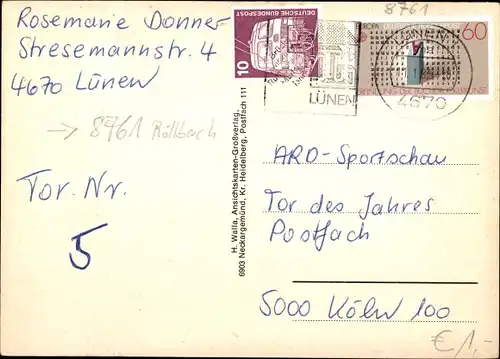 Rosemarie Donner
Stresemannstr. 4
4670 Lünen
→ 8761 Röllbach
Tor. Nr.
5
H. Walla, Ansichtskarten-Großverlag,
6903 Neckargemünd, Kr. Heidelberg, Postfach 111
DEUTSCHE BUNDESPOST
10
LÜNEN
8761
EUROPA
60
4670
ARD-Sportschau
Tor des Jahres
Postfach
5000 Köln 100
€ 1,-